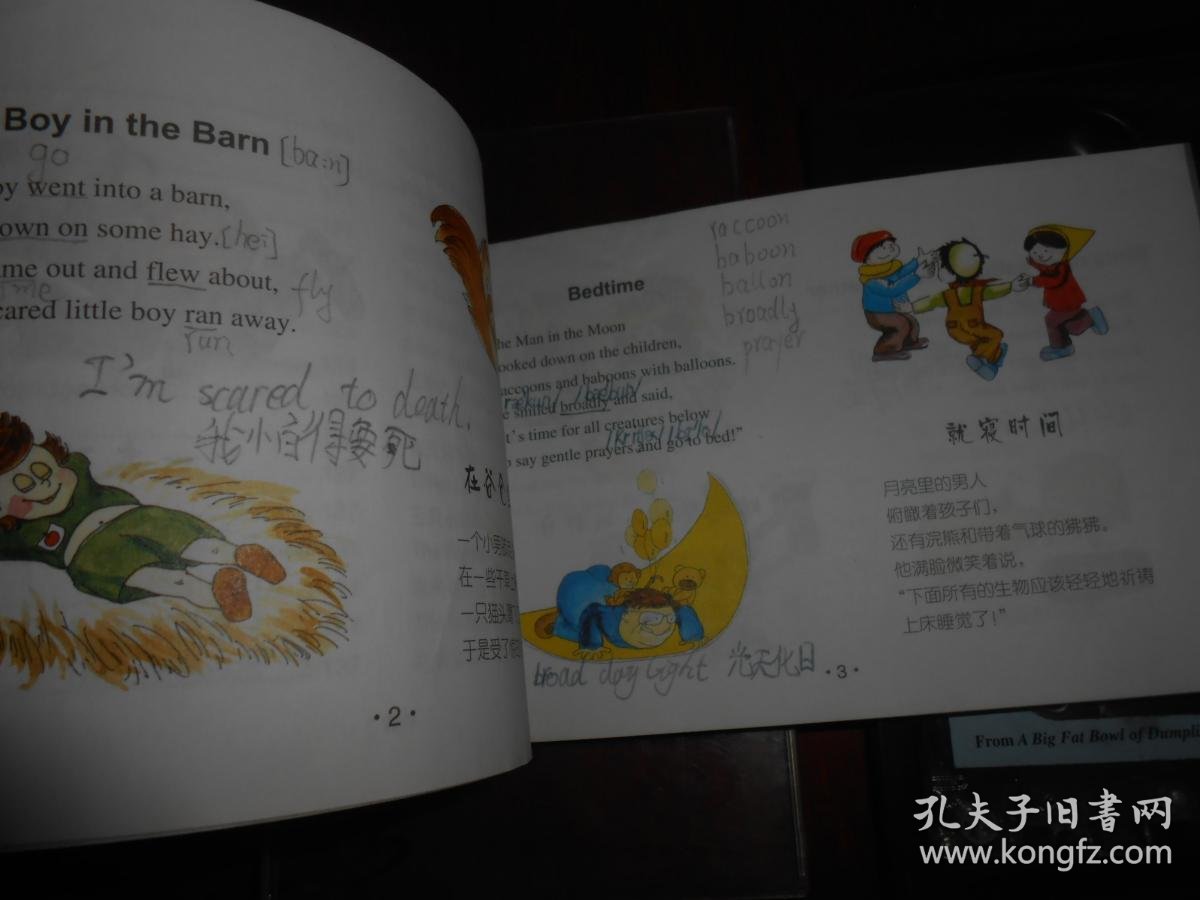 Boy in the Barn [ba:n]
go
went into a barn,
own on some hay. [hei]
ame out and flew about, fly
cared little boy ran away.
run
I'm scared to death.
我小白得要死
在谷
一个小男孩
在一些干草
一只猫头鹰
于是受了
·2·
Bedtime
he Man in the Moon
ooked down on the children,
accoons and baboons with balloons.
e smiled broadly and said,
t's time for all creatures below
o say gentle prayers and go to bed!"
raccoon
baboon
ballon
broadly
prayer
broad day light 光天化日
·3·
就寝时间
月亮里的男人
俯瞰着孩子们，
还有浣熊和带着气球的狒狒。
他满脸微笑着说，
“下面所有的生物应该轻轻地祈祷
上床睡觉了！”
From A Big Fat Bowl of Dumpli
孔夫子旧书网
www.kongfz.com